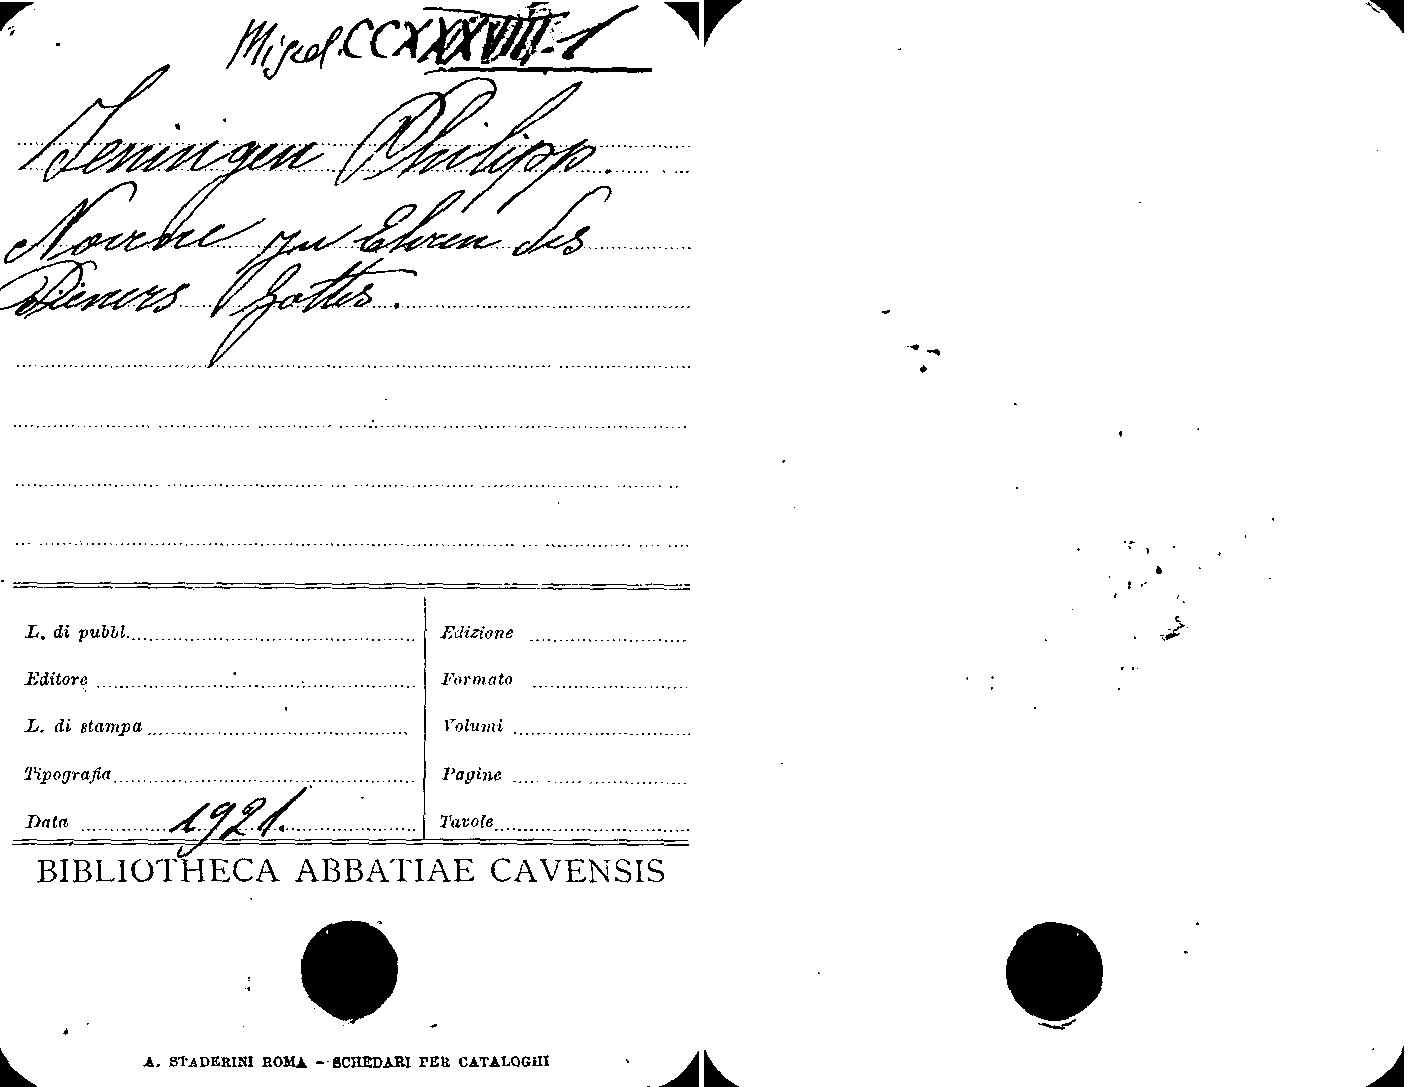 Miscel. CCXXXVIII. 1
Jeningen Philipp.
Noveme zu Ehren des
Dieners Gottes.
L. di pubbl.
Edizione
Editore
Formato
L. di stampa
Volumi
Tipografia
Pagine
Data 1921.
Tavole
BIBLIOTHECA ABBATIAE CAVENSIS
A. STADERINI ROMA - SCHEDARI PER CATALOGHI